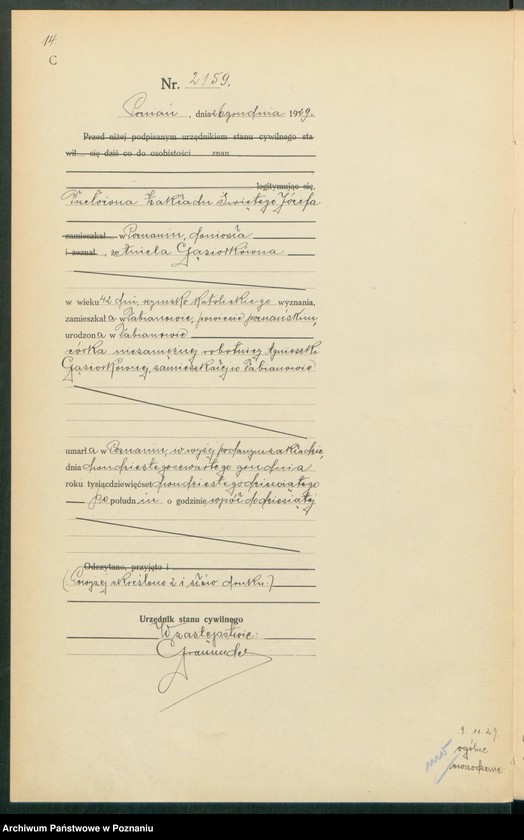 14
C
Nr. 2159.
Poznań, dnia 26 grudnia 1929.
Przed niżej podpisanym urzędnikiem stanu cywilnego sta
wił się dziś co do osobistości znan
legitymując się,
Przełożona Zakładu Świętego Józefa
zamieszkał w Poznaniu, doniosła
i zeznał, że Aniela Gąsiorkówna
w wieku 42 dni, rzymsko katolickiego wyznania,
zamieszkała w Żabianowie, powiecie poznańskim,
urodzona w Żabianowie
córka niezamężnej robotnicy Agnieszki
Gąsiorkównej, zamieszkałej w Żabianowie
umarła w Poznaniu, w wyżej podanym zakładzie,
dnia dwudziestego czwartego grudnia
roku tysiącdziewięćset dwudziestego dziewiątego
po połudn iu o godzinie wpół do dziesiątej
Odczytano, przyjęto i
(Powyżej skreślono 2 i słów druku.)
Urzędnik stanu cywilnego
W zastępstwie:
9. 11. 29.
ogólne
Archiwum Państwowe w Poznaniu